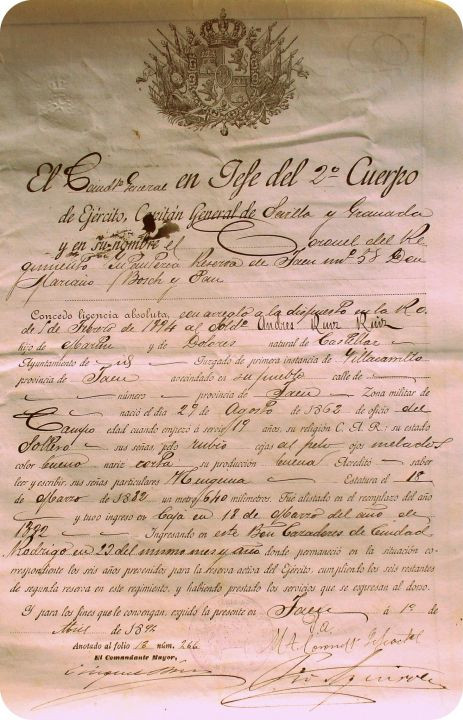 El Comdte General en Jefe del 2º Cuerpo
de Ejército, Capitán General de Sevilla y Granada
y en su nombre el Coronel del Re-
gimiento Infantería Reserva de Jaen nº 58 Don
Mariano Bosch y
Concedo licencia absoluta, con arreglo a lo dispuesto en la R. O.
de 1º de Febrero de 1894 al Soldo Andres Ruiz Ruiz
hijo de Martin y de Dolores natural de Castellar
Ayuntamiento de id Juzgado de primera instancia de Villacarrillo
provincia de Jaen avecindado en su pueblo calle de
número provincia de Jaen Zona militar de
nació el 29 de Agosto de 1862 de oficio del
Campo edad cuando empezó a servir 19 años, su religión C. A. R: su estado
Soltero sus señas, pelo rubio cejas al pelo ojos melados
color bueno nariz corta su producción buena Acreditó saber
leer y escribir, sus señas particulares Ninguna Estatura el 18
de Marzo de 1882 un metro 640 milímetros. Fué alistado en el reemplazo del año
y tuvo ingreso en Caja en 18 de Marzo del año de
Ingresando en este Bon Cazadores de Ciudad
Rodrigo en 23 del mismo mes y año donde permaneció en la situación co-
rrespondiente los seis años presenidos para la reserva activa del Ejército, cumpliendo los seis restantes
de segunda reserva en este regimiento, y habiendo prestado los servicios que se expresan al dorso.
Y para los fines que le convengan, expido la presente en Jaen á 1º de
Abril de
Anotado al folio 16 núm. 266
El Comandante Mayor,